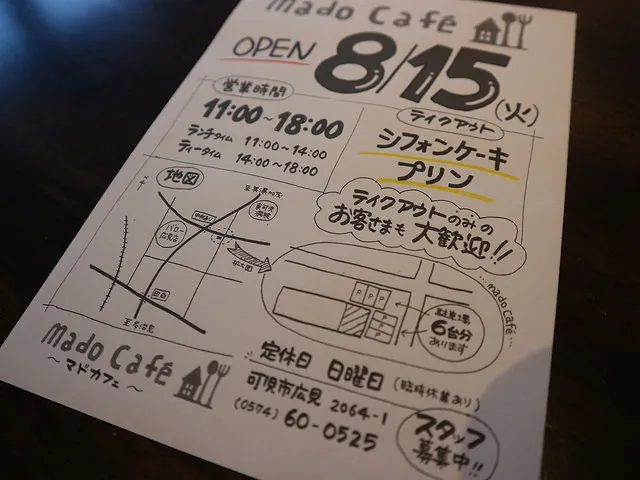 mado Café
OPEN 8/15(火)
営業時間
11:00~18:00
ランチタイム 11:00~14:00
ティータイム 14:00~18:00
テイクアウト
シフォンケーキ
プリン
テイクアウトのみの
お客さまも大歓迎!!
地図
バロー
広見店
拡大図
P P P
P
P
駐車場
6台分
あります
...mado Café...
mado Café
~マドカフェ~
定休日 日曜日(臨時休業あり)
可児市広見 2064-1
(0574) 60-0525
スタッフ
募集中!!